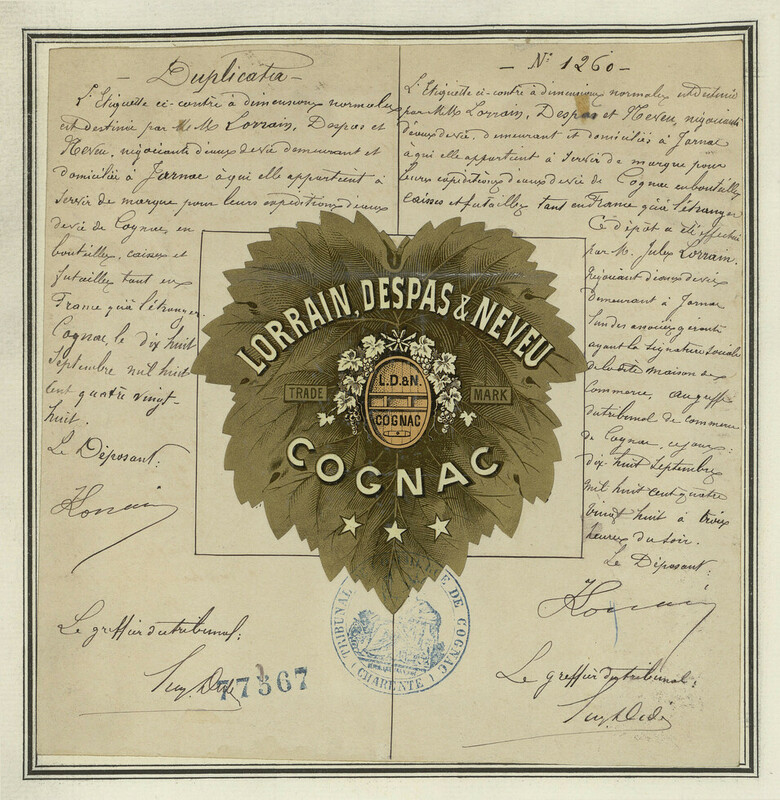 Duplicata
L'Etiquette ci-contre à dimensions normales
est destinée par MM Lorrain, Despas et
Neveu, négociants d'eaux de vie demeurant et
domiciliés à Jarnac à qui elle appartient à
servir de marque pour leurs expéditions d'eaux
de vie de Cognac, en
bouteilles, caisses et
futailles tant en
France qu'à l'étranger.
Cognac, le dix huit
Septembre mil huit
cent quatre vingt-
huit.
Le Déposant:
Lorrain
Le greffier du tribunal:
77367
N° 1260
L'Etiquette ci-contre à dimensions normales est destinée
par MM. Lorrain, Despas et Neveu, négociants
d'eaux de vie, demeurant et domiciliés à Jarnac
à qui elle appartient à servir de marque pour
leurs expéditions d'eaux de vie de Cognac en bouteilles
caisses et futailles tant en France qu'à l'étranger
Ce dépôt a été effectué
par M. Jules Lorrain.
Négociant d'eaux de vie
demeurant à Jarnac
l'un des associés gérants
ayant la signature sociale
de la dite maison de
Commerce, au greffe
du tribunal de commerce
de Cognac, ce jour:
dix huit Septembre
mil huit cent quatre
vingt huit à trois
heures du soir.
Le Déposant:
Lorrain
Le greffier du tribunal:
LORRAIN, DESPAS & NEVEU
TRADE MARK
L.D.&N.
COGNAC
COGNAC
TRIBUNAL DE COGNAC
(CHARENTE)